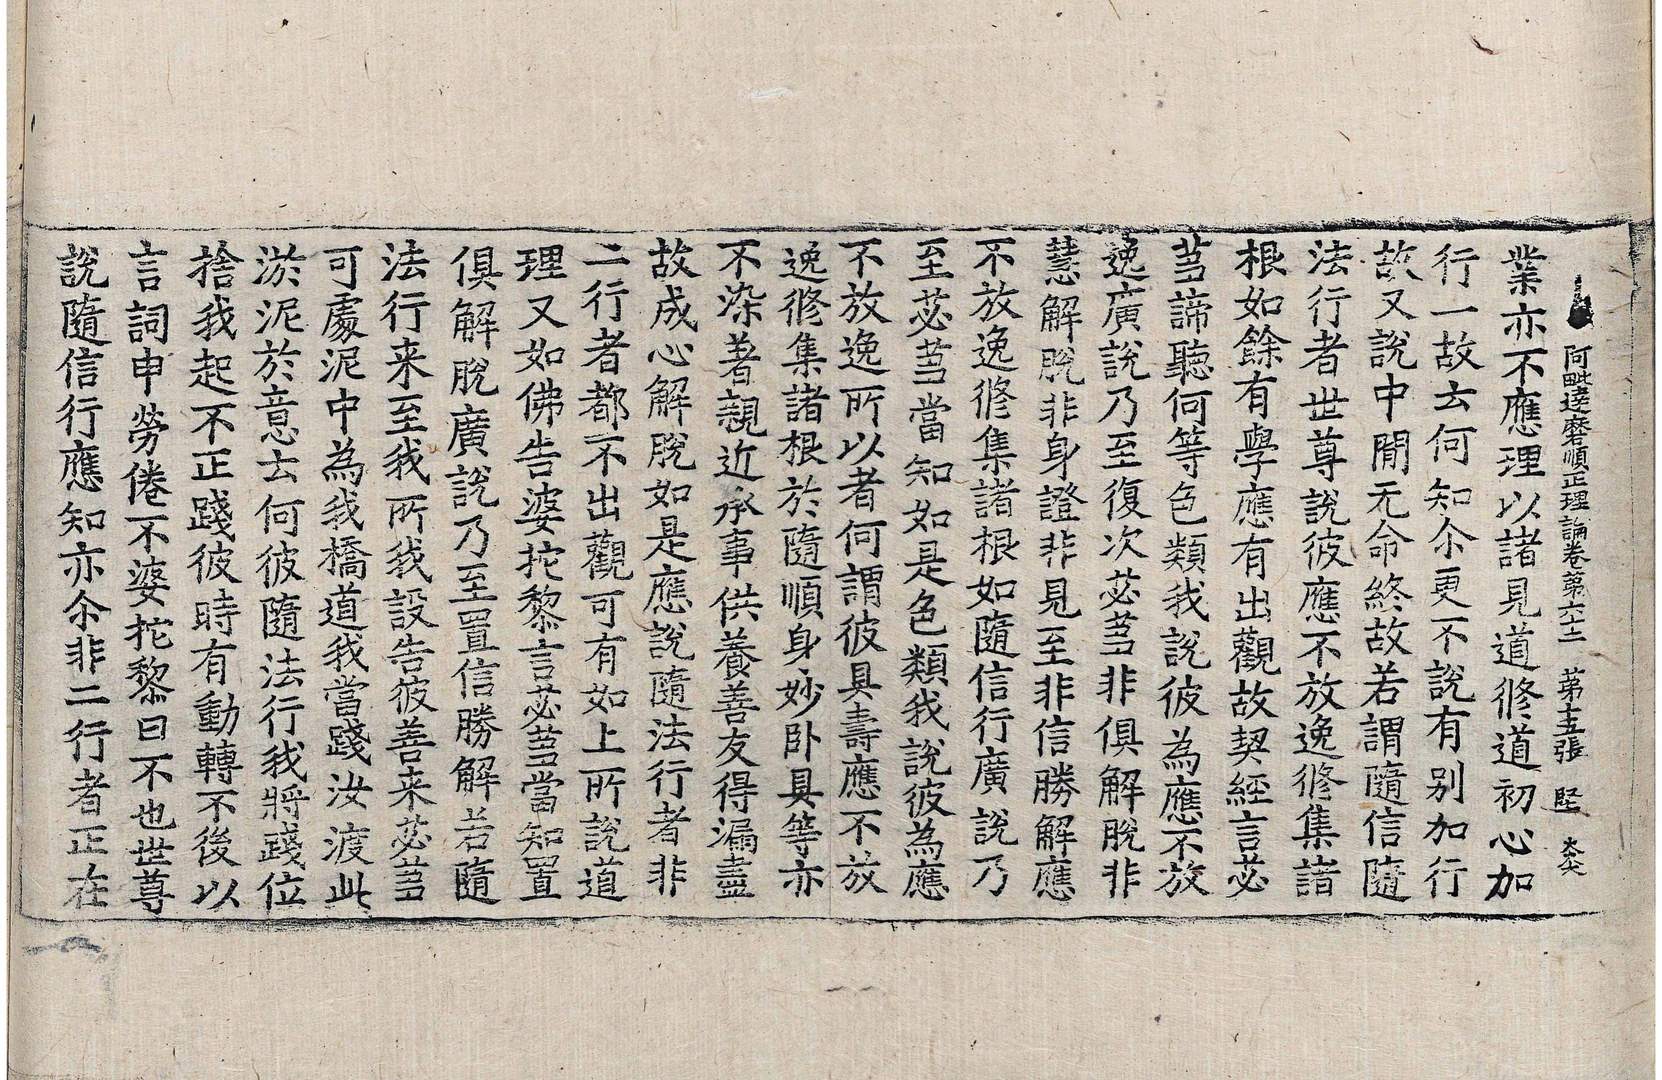 阿毗達磨順正理論卷第六十二 第十五張 堅
業亦不應理以諸見道修道初心加
行一故云何知尒更不說有别加行
故又說中閒无命終故若謂隨信隨
法行者世尊說彼應不放逸修集諸
根如餘有學應有出觀故契經言苾
芻諦聽何等色類我說彼為應不放
逸廣說乃至復次苾芻非俱解脫非
慧解脫非身證非見至非信勝解應
不放逸修集諸根如隨信行廣說乃
至苾芻當知如是色類我說彼為應
不放逸所以者何謂彼具壽應不放
逸修集諸根於隨順身妙卧具等亦
不染著親近承事供養善友得漏盡
故成心解脫如是應說隨法行者非
二行者都不出觀可有如上所說道
理又如佛告婆拕黎言苾芻當知置
俱解脫廣說乃至置信勝解若隨
法行来至我所我設告彼善来苾芻
可處泥中為我橋道我當踐汝渡此
淤泥於意云何彼隨法行我將踐位
捨我起不正踐彼時有動轉不後以
言詞申勞倦不婆拕黎曰不也世尊
說隨信行應知亦尒非二行者正在